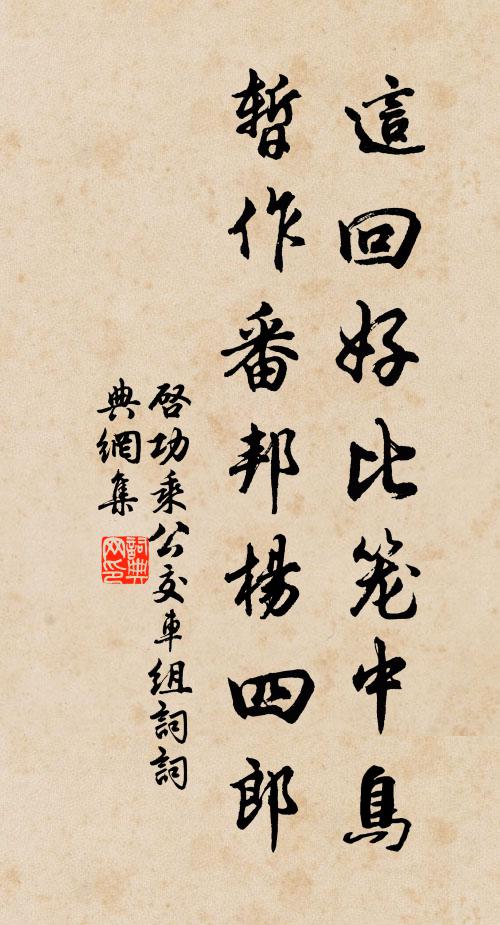 這回好比笼中鳥
暫作番邦楊四郎
啓功乘公交車組詞詞
典網集
詞典
网印